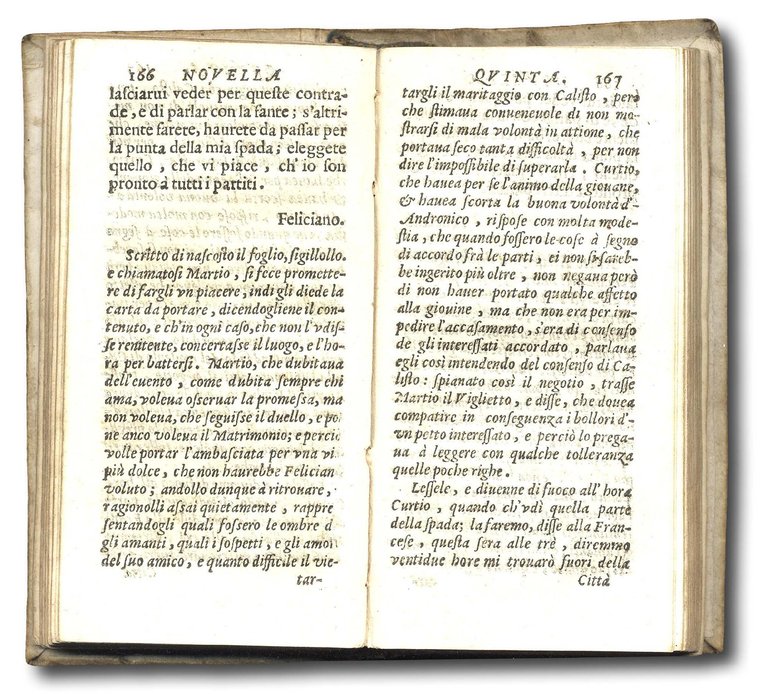 166 NOVELLA
lasciarui veder per queste contra-
de, e di parlar con la fante; s'altri-
mente farete, haurete da passar per
la punta della mia spada; eleggete
quello, che vi piace, ch'io son
pronto à tutti i partiti.
Feliciano.
Scritto di nascosto il foglio, sigillollo.
e chiamatosi Martio, si fece promette-
re di fargli vn piacere, indi gli diede la
carta da portare, dicendogliene il con-
tenuto, e ch'in ogni caso, che non l'vdis-
se renitente, concertasse il luogo, e l'ho-
ra per battersi. Martio, che dubitaua
dell'euento, come dubita sempre chi
ama, voleua osseruar la promessa, ma
non voleua, che seguisse il duello, e po
ne anco voleua il Matrimonio; e perciò
volle portar l'ambasciata per vna vi
più dolce, che non haurebbe Felician
voluto; andollo dunque à ritrouare,
ragionolli assai quietamente, rappre
sentandogli quali fossero le ombre d
gli amanti, quali i sospetti, e gli amor
del suo amico, e quanto difficile il vie-
tar-
QVINTA. 167
targli il maritaggio con Calisto, però
che stimaua conueneuole di non mo-
strarsi di mala volontà in attione, che
portaua seco tanta difficoltà, per non
dire l'impossibile di superarla. Curtio,
che hauea per se l'animo della giouane,
& hauea scorta la buona volontà d'-
Andronico, rispose con molta mode-
stia, che quando fossero le cose à segno
di accordo frà le parti, ei non si sareb-
be ingerito più oltre, non negaua però
di non hauer portato qualche affetto
alla giouine, ma che non era per im-
pedire l'accasamento, s'era di consenso
de gli interessati accordato, parlaua
egli così intendendo del consenso di Ca-
listo: spianato così il negotio, trasse
Martio il Viglietto, e disse, che douea
compatire in conseguenza i bollori d'-
vn petto interessato, e perciò lo prega-
ua à leggere con qualche tolleranza
quelle poche righe.
Lessele, e diuenne di fuoco all'hora
Curtio, quando ch'vdì quella parte
della spada; la faremo, disse alla Fran-
cese, questa sera alle trè, diremmo
ventidue hore mi trouarò fuori della
Città